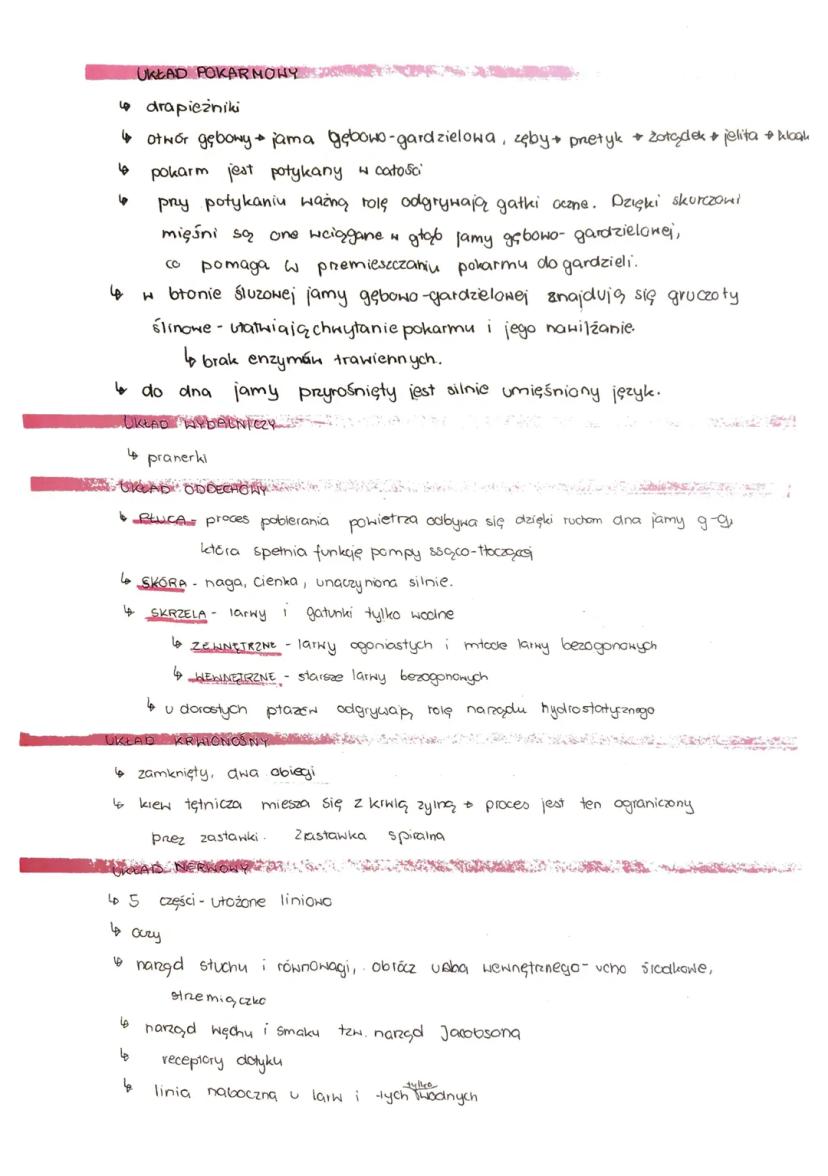 UKŁAD POKARMOWY
↳ drapieżniki
↳ otwór gębowy → jama gębowo-gardzielowa, zęby → przełyk → żołądek → jelita → kloaka
↳ pokarm jest połykany w całości
↳ przy połykaniu ważną rolę odgrywają gałki oczne. Dzięki skurczowi
mięśni są one wciągane w głąb jamy gębowo-gardzielowej,
co pomaga w przemieszczaniu pokarmu do gardzieli.
↳ w błonie śluzowej jamy gębowo-gardzielowej znajdują się gruczoły
ślinowe - ułatwiają chwytanie pokarmu i jego nawilżanie.
↳ brak enzymów trawiennych.
↳ do dna jamy przyrośnięty jest silnie umięśniony język.
UKŁAD WYDALNICZY
↳ pranerki
UKŁAD ODDECHOWY
↳ PŁUCA - proces pobierania powietrza odbywa się dzięki ruchom dna jamy g-g,
która spełnia funkcję pompy ssąco-tłoczącej
↳ SKÓRA - naga, cienka, unaczyniona silnie.
↳ SKRZELA - larwy i gatunki tylko wodne
↳ ZEWNĘTRZNE - larwy ogoniastych i młode larwy bezogonowych
↳ WEWNĘTRZNE - starsze larwy bezogonowych
↳ u dorosłych płazów odgrywają rolę narządu hydrostatycznego
UKŁAD KRWIONOŚNY
↳ zamknięty, dwa obiegi
↳ krew tętnicza miesza się z krwią żylną → proces jest ten ograniczony
przez zastawki. Zastawka spiralna
UKŁAD NERWOWY
↳ 5 części - ułożone liniowo
↳ oczy
↳ narząd słuchu i równowagi, oprócz ucha wewnętrznego - ucho środkowe,
strzemiączko
↳ narząd węchu i smaku tzw. narząd Jacobsona
↳ receptory dotyku
↳ linia naboczna u larw i tych tylko wodnych